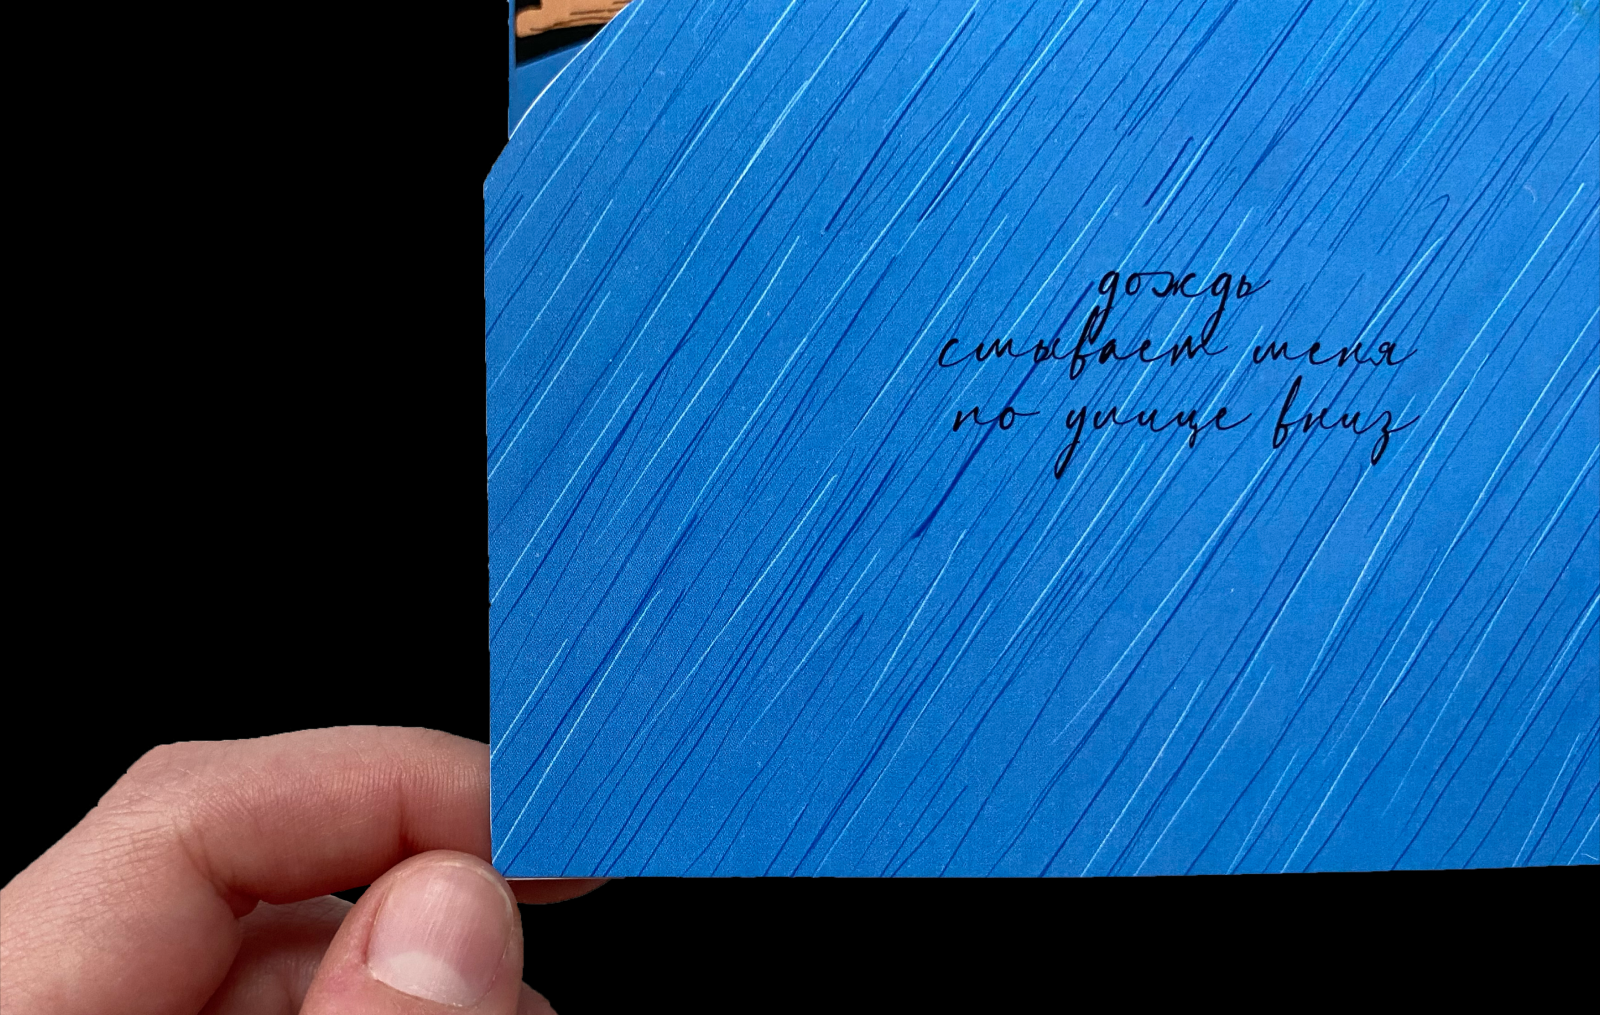 дождь
смывает меня
по улице вниз